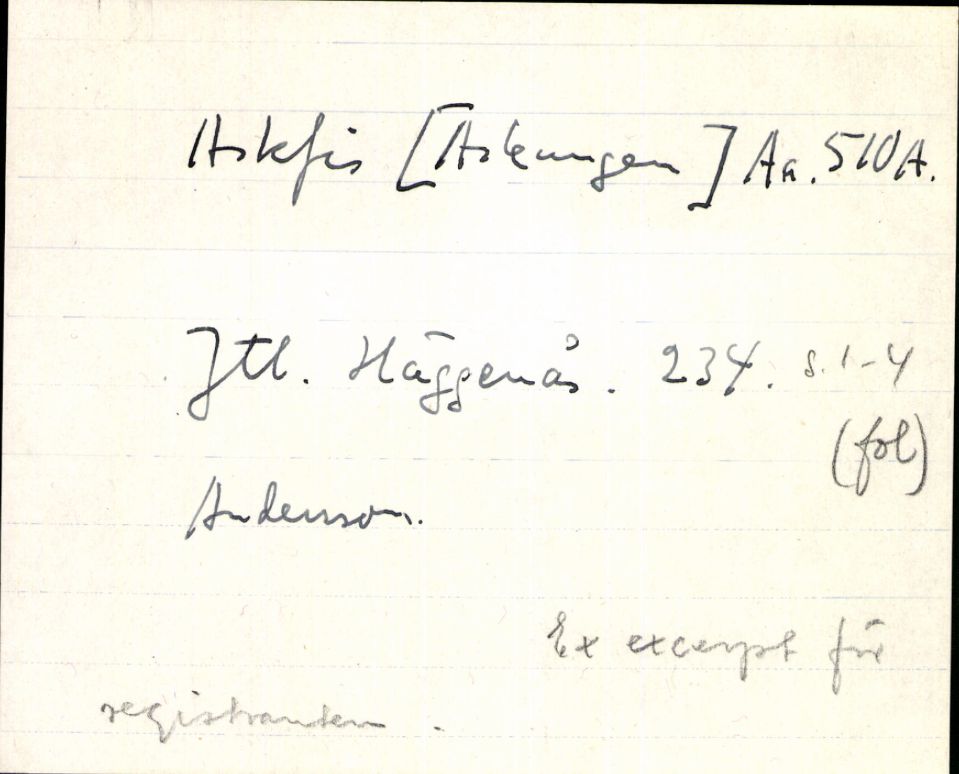 Askfis [Askungen] Aa. 510A.
Jtl. Häggenås. 234. s. 1-4
(fol)
Andersson.
Ex excerpt för
registranten.